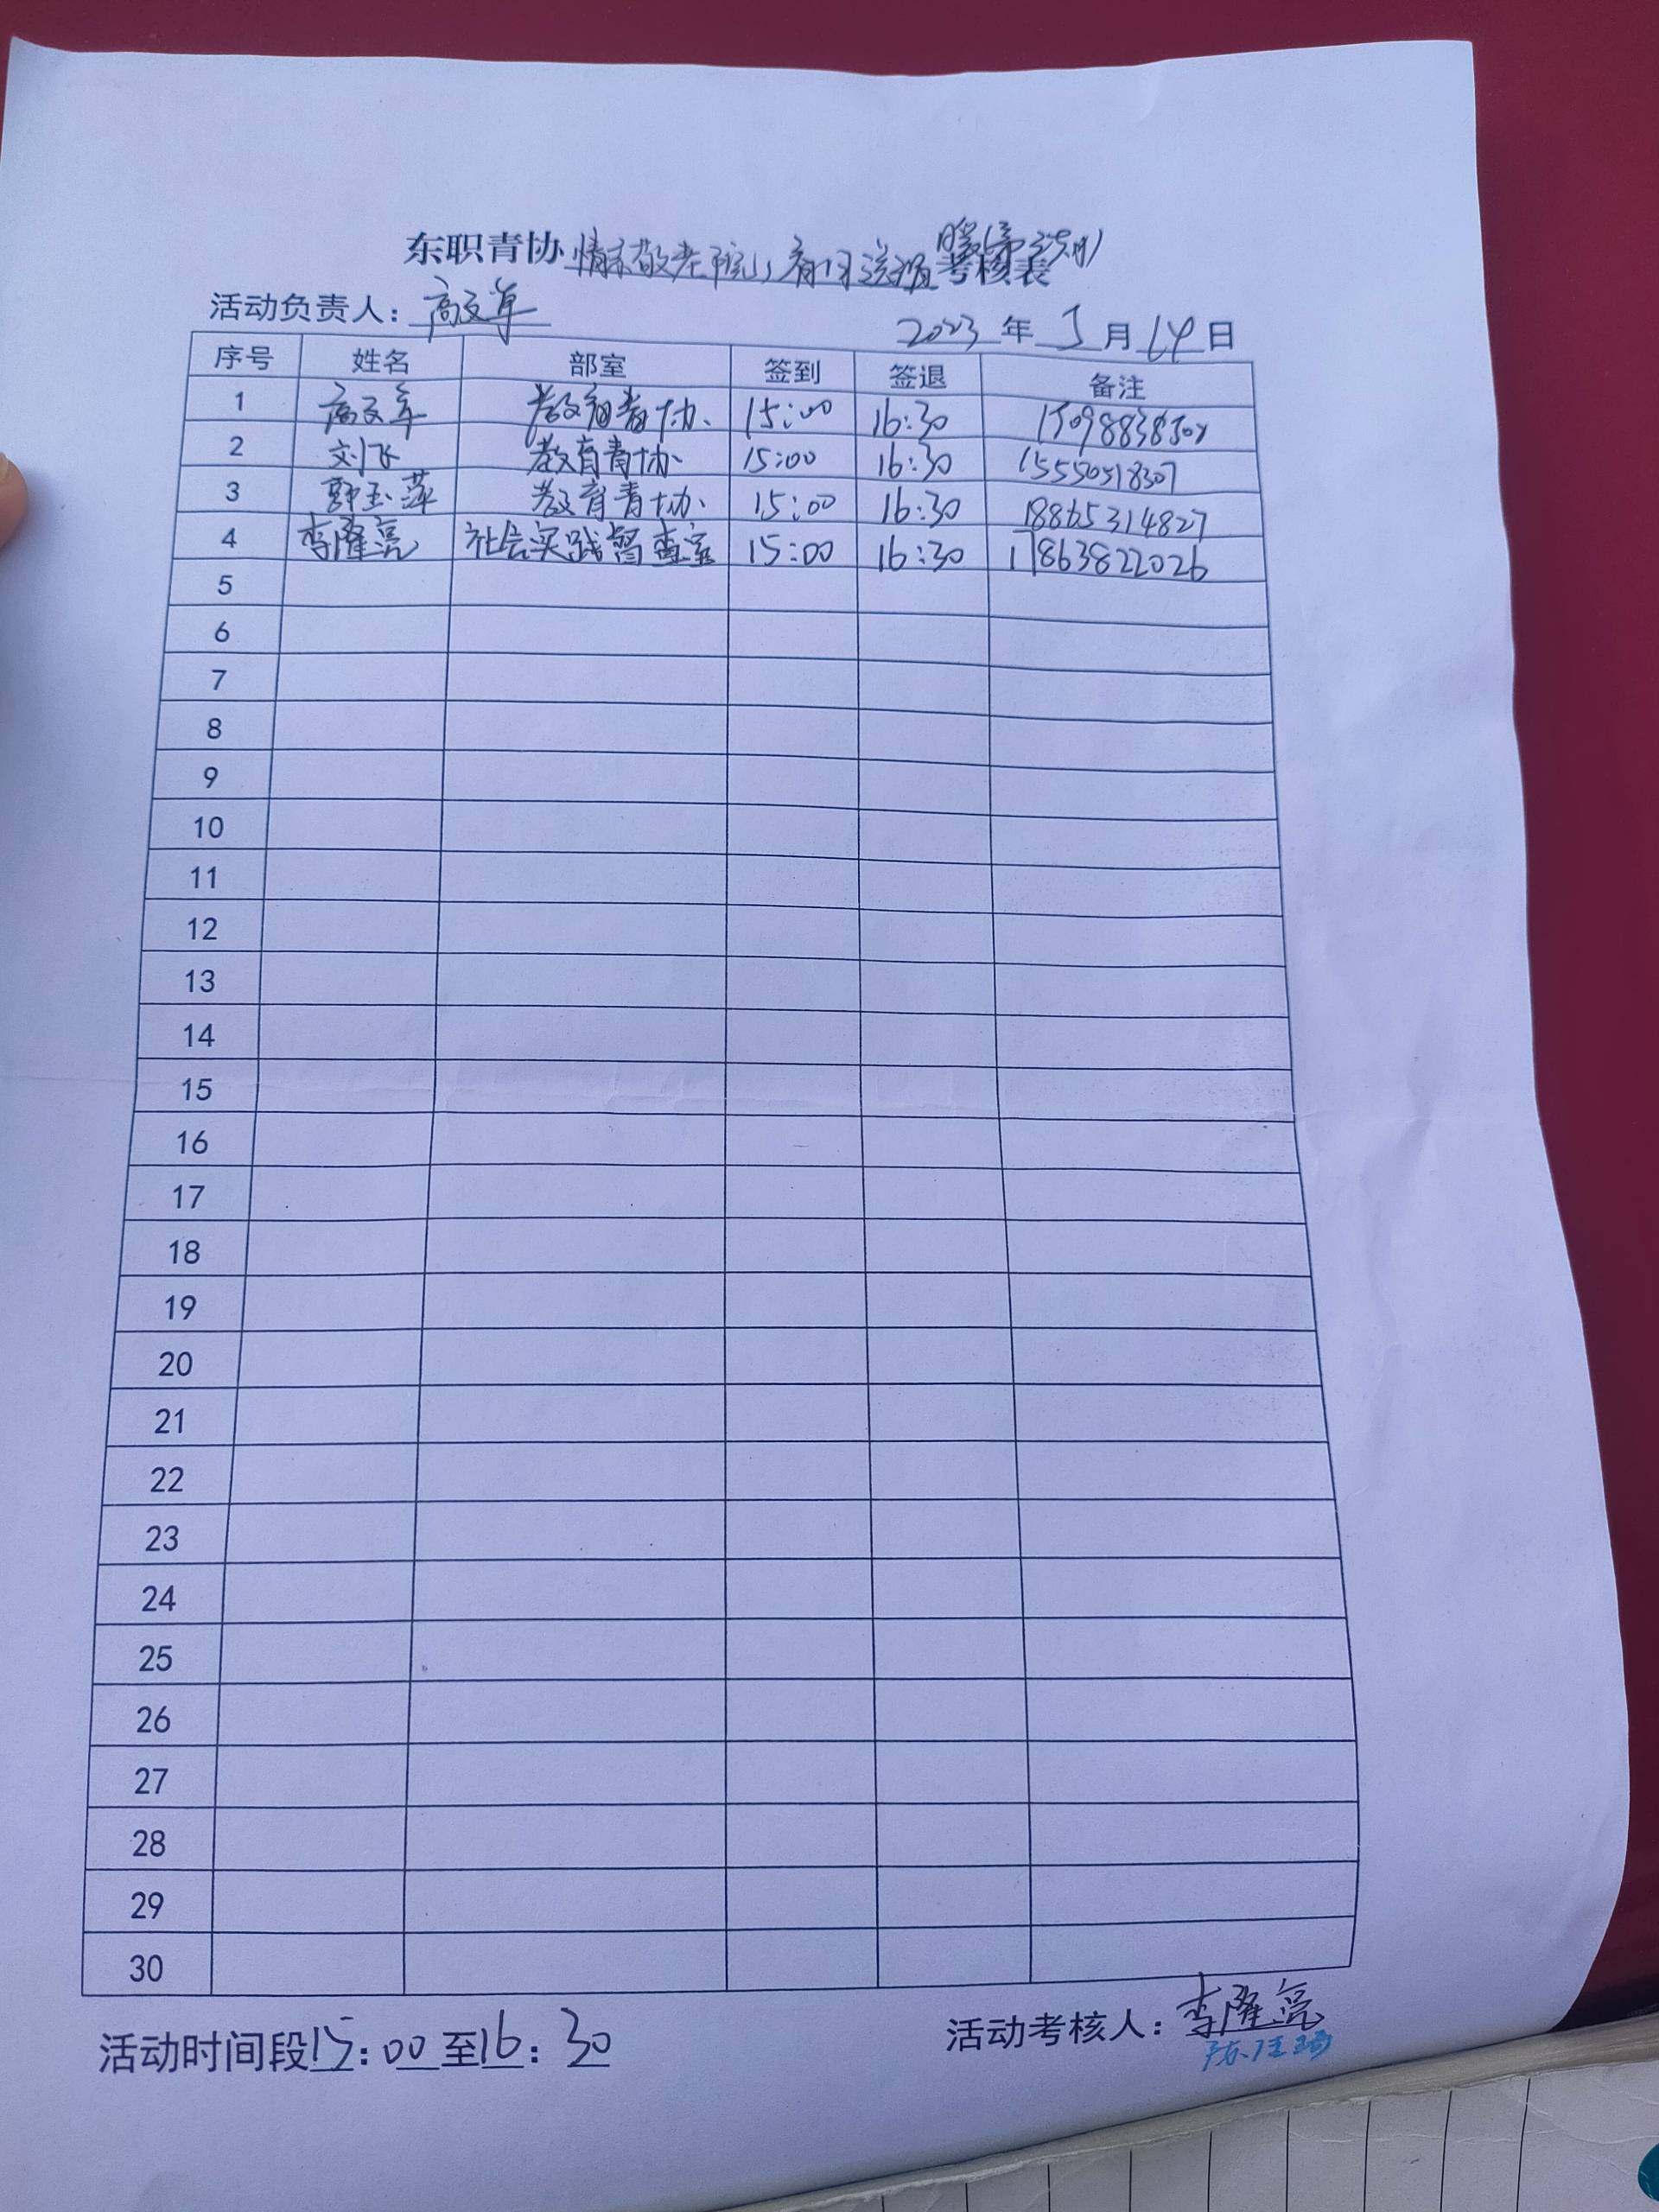 东职青协情系敬老院，育日送温暖(第 期)考核表
活动负责人：高文军
2023年5月14日
序号 姓名 部室 签到 签退 备注
1 高文军 教育青协 15:00 16:30
2 刘飞 教育青协 15:00 16:30 15550518307
3 郭玉萍 教育青协 15:00 16:30 18865314827
4 李隆亮 社会实践督查室 15:00 16:30 17863822026
5
6
7
8
9
10
11
12
13
14
15
16
17
18
19
20
21
22
23
24
25
26
27
28
29
30
活动时间段15:00至16:30
活动考核人：李隆亮